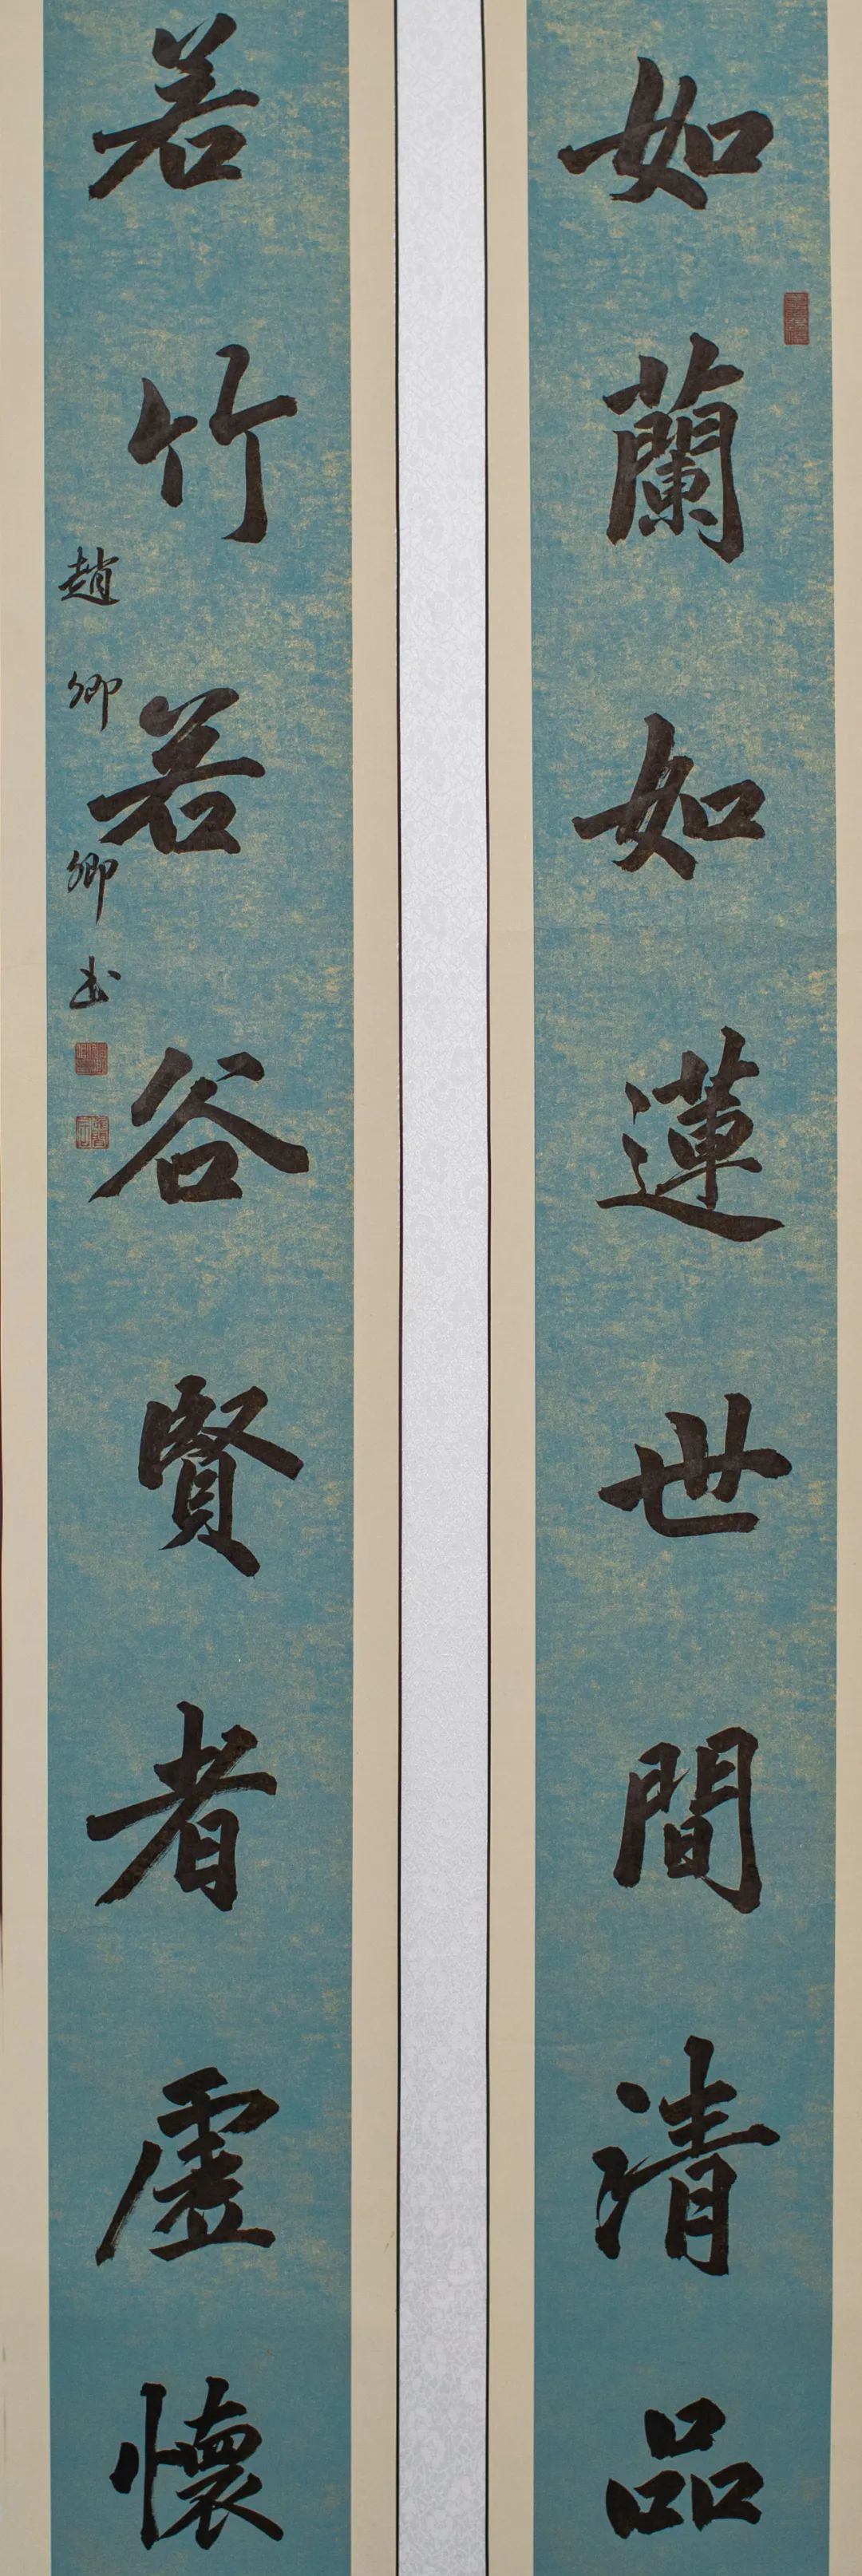 如蘭如蓮世間清品
若竹若谷賢者虛懷
趙卿卿书